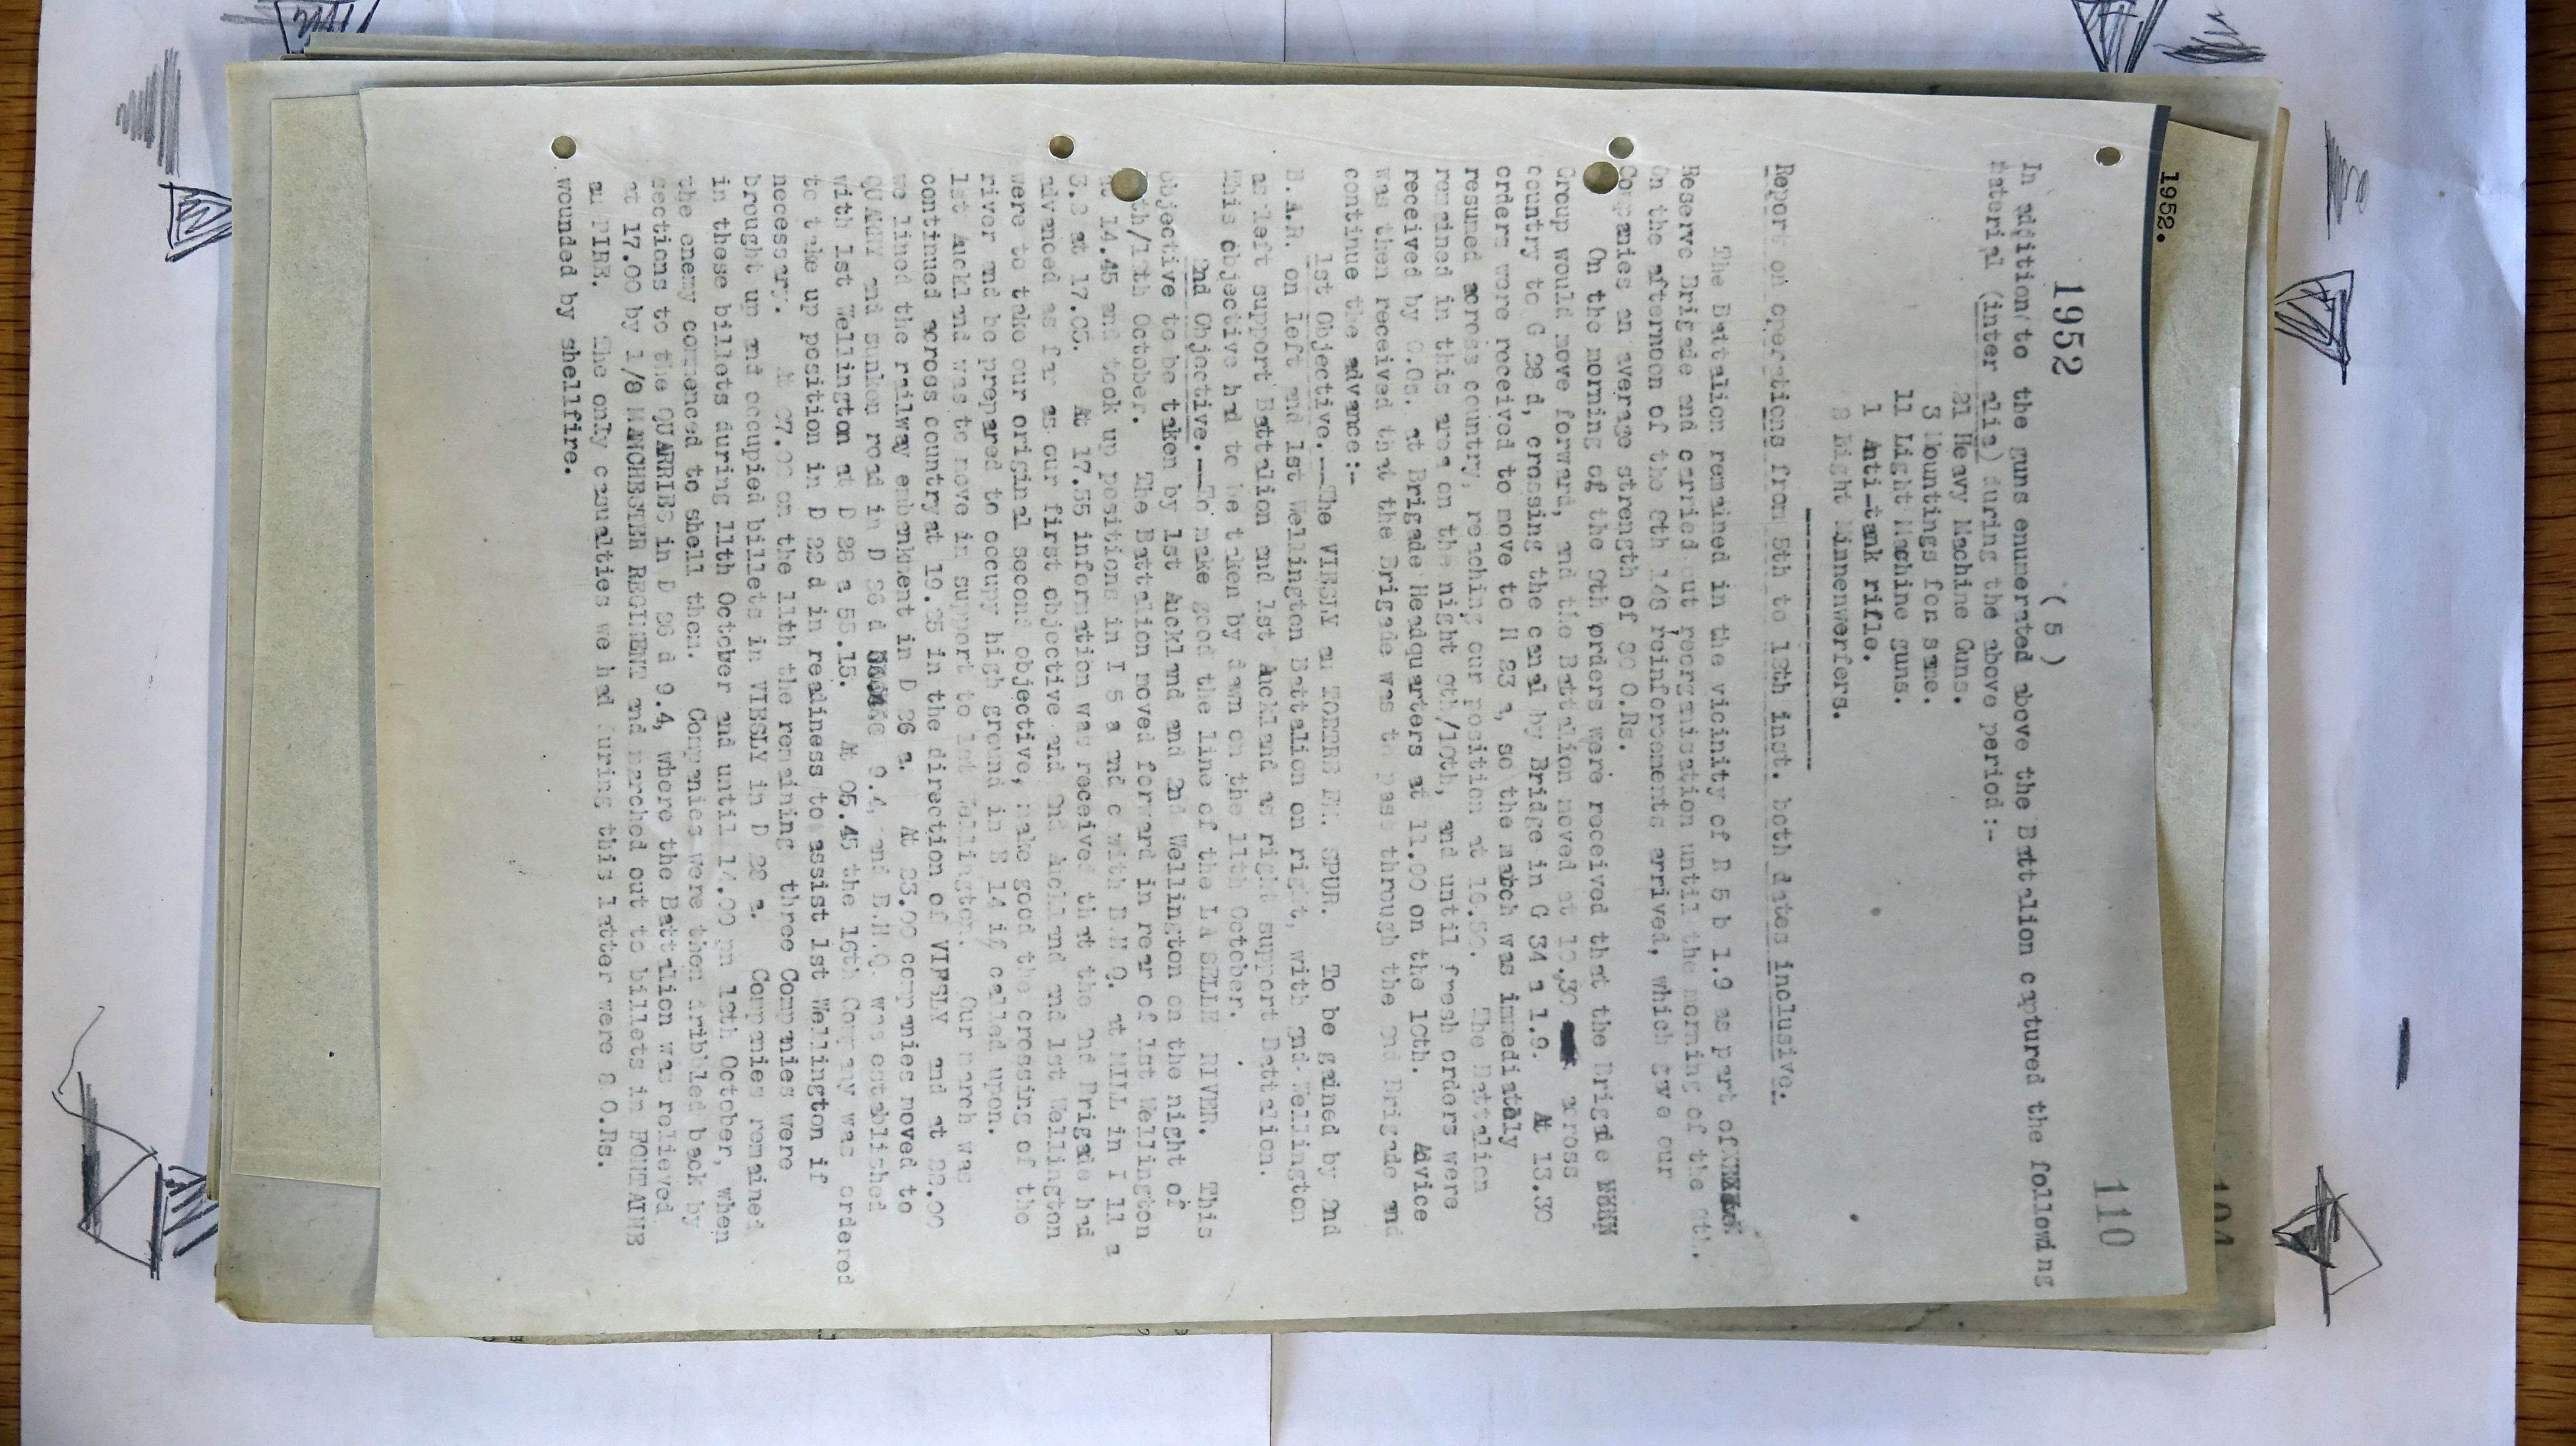 1952.
1952
110
( 5 )
In addition to the guns enumerated above the Battalion captured the following
material (inter alia) during the above period:-
21 Heavy Machine Guns.
3 Mountings for same.
11 Light Machine guns.
1 Anti-tank rifle.
2 Light Minnenwerfers.
Report on operations from 5th to 12th inst. both dates inclusive.
The Battalion remained in the vicinity of R 5 b 1.9 as part of
Reserve Brigade and carried out reorganisation until the morning of the 9th.
On the afternoon of the 8th 148 reinforcements arrived, which gave our
Companies an average strength of 80 O.Rs.
On the morning of the 9th orders were received that the Brigade
Group would move forward, and the Battalion moved at 10.30 across
country to G 28 d, crossing the canal by Bridge in G 34 a 1.9. At 13.30
orders were received to move to H 23 a, so the march was immediately
resumed across country, reaching our position at 16.50. The Battalion
remained in this area on the night 9th/10th, and until fresh orders were
received by C.Os. at Brigade Headquarters at 11.00 on the 10th. Advice
was then received that the Brigade was to pass through the 2nd Brigade and
continue the advance:-
1st Objective.--The VIESLY au TORRE Fm. SPUR. To be gained by 2nd
B.A.R. on left and 1st Wellington Battalion on right, with 2nd Wellington
as left support Battalion and 1st Auckland as right support Battalion.
This objective had to be taken by dawn on the 11th October.
2nd Objective.--To make good the line of the LA SELLE RIVER. This
objective to be taken by 1st Auckland and 2nd Wellington on the night of
th/12th October. The Battalion moved forward in rear of 1st Wellington
at 14.45 and took up positions in I 5 a and c with B.H.Q. at MILL in I 11 a
3.2 at 17.05. At 17.55 information was received that the 2nd Brigade had
advanced as far as our first objective and 2nd Auckland and 1st Wellington
were to take our original second objective, make good the crossing of the
river and be prepared to occupy high ground in E 14 if called upon.
1st Auckland was to move in support to 1st Wellington. Our march was
continued across country at 19.25 in the direction of VIESLY and at 22.00
we lined the railway embankment in D 26 a. At 23.00 companies moved to
QUARRY and sunken road in D 26 d 9.4, and B.H.Q. was established
with 1st Wellington at D 28 a 55.15. At 05.45 the 16th Company was ordered
to take up position in D 22 d in readiness to assist 1st Wellington if
necessary. At 07.00 on the 11th the remaining three Companies were
brought up and occupied billets in VIESLY in D 22 a. Companies remained
in these billets during 11th October and until 14.00 on 12th October, when
the enemy commenced to shell them. Companies were then dribbled back by
sections to the QUARRIES in D 26 d 9.4, where the Battalion was relieved
at 17.00 by 1/8 MANCHESTER REGIMENT and marched out to billets in FONTAINE
au PIRE. The only casualties we had during this latter were 8 O.Rs.
wounded by shellfire.